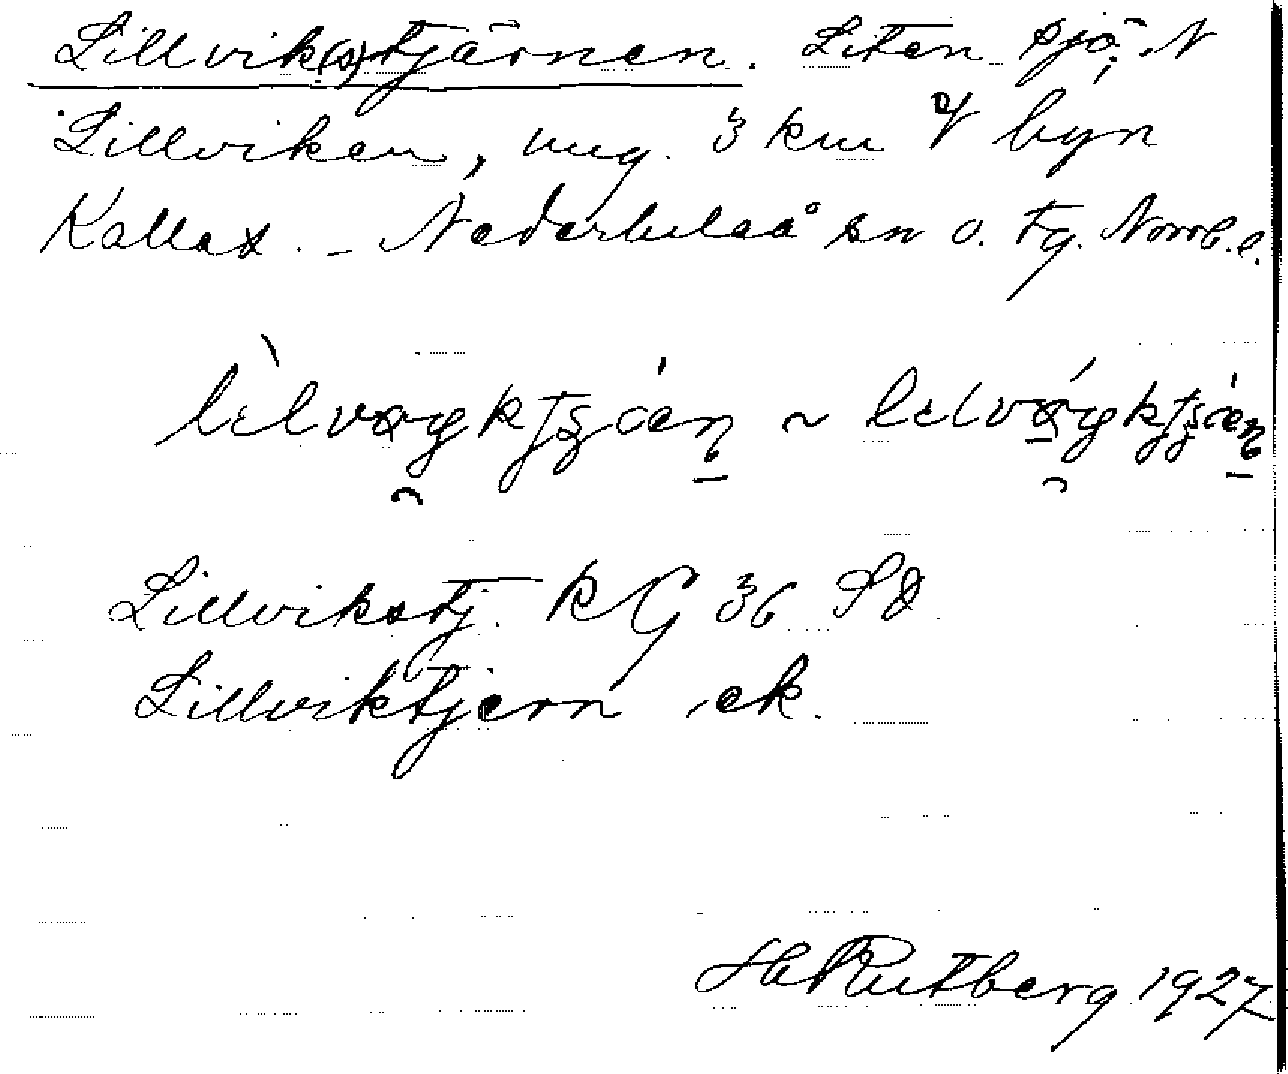 Lillvik(s)tjärnen. Liten sjö, N
Lillviken, ung. 3 km V byn
Kallax. – Nederluleå sn o. tg. Norrb. l.
~
Lillvikstj. RG 36 SO
Lillviktjern ek.
Hj Rutberg 1927